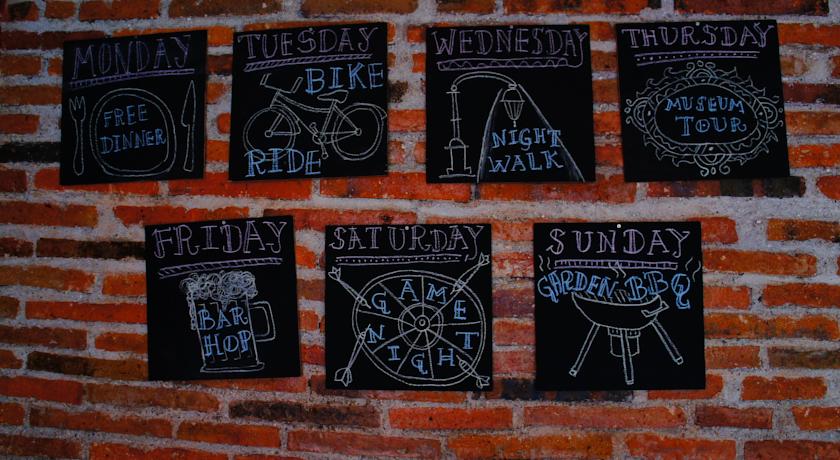 MONDAY
FREE
DINNER
TUESDAY
BIKE
RIDE
WEDNESDAY
NIGHT
WALK
THURSDAY
MUSEUM
TOUR
FRIDAY
BAR
HOP
SATURDAY
GAME
NIGHT
SUNDAY
GARDEN BBQ